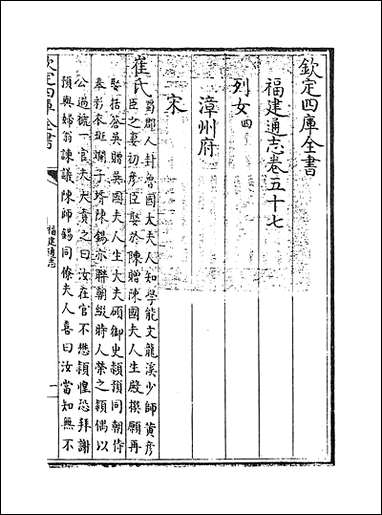 欽定四庫全書
福建通志卷五十七
列女四
漳州府
宋
崔氏
蜀郡人封魯國太夫人知學能文龍溪少師黃彥
臣之妻初彥臣娶於陳贈陳國夫人生殿撰願再
娶括蒼吳贈吳國夫人生大夫碩御史頴預同朝侍
奉彩衣斑斕子壻陳錫亦聯朝綴時人榮之頴偶以
公過褫一官夫人大責之曰汝在官不懋頴惶恐拜謝
預與婦翁諫議陳師錫同僚夫人喜曰汝當知無不
欽定四庫全書
福建通志
一